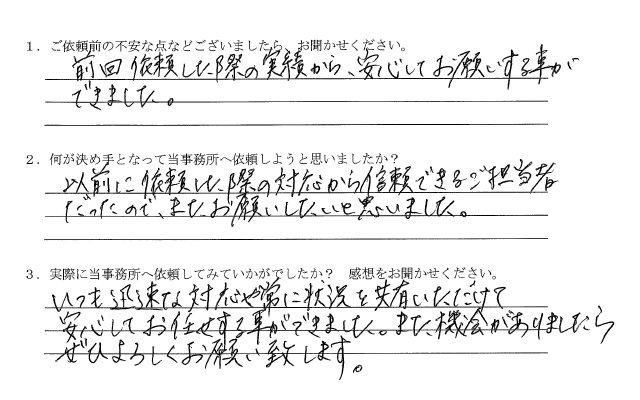 1．ご依頼前の不安な点などございましたら、お聞かせください。
前回依頼した際の実績から、安心してお願いする事が
できました。
2．何が決め手となって当事務所へ依頼しようと思いましたか？
以前に依頼した際の対応から信頼できるご担当者
だったので、またお願いしたいと思いました。
3．実際に当事務所へ依頼してみていかがでしたか？　感想をお聞かせください。
いつも迅速な対応や常に状況を共有いただけて
安心してお任せする事ができました。また機会がありましたら
ぜひよろしくお願い致します。